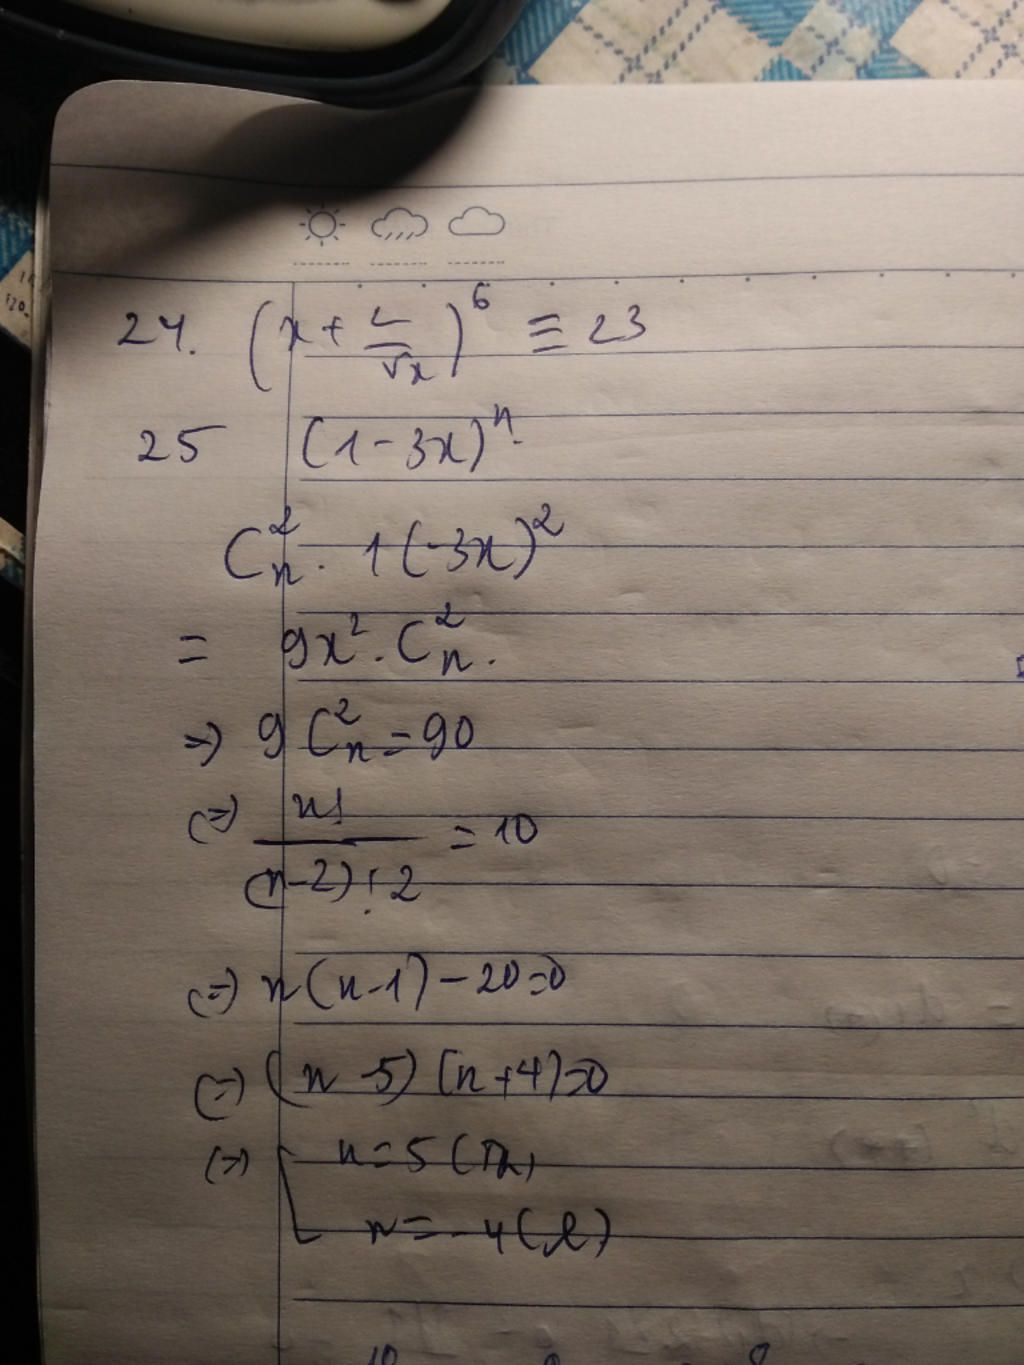 24. (x + 2/√x)^6 ≡ 23
25 (1-3x)^n.
C_n^2 . 1(-3x)^2
= 9x^2 . C_n^2 .
=> 9 C_n^2 = 90
(=) n!/(n-2)!2 = 10
(=) n(n-1) - 20=0
(=) (n-5)(n+4)=0
(=) [ n=5 (TM)
n=-4(l)